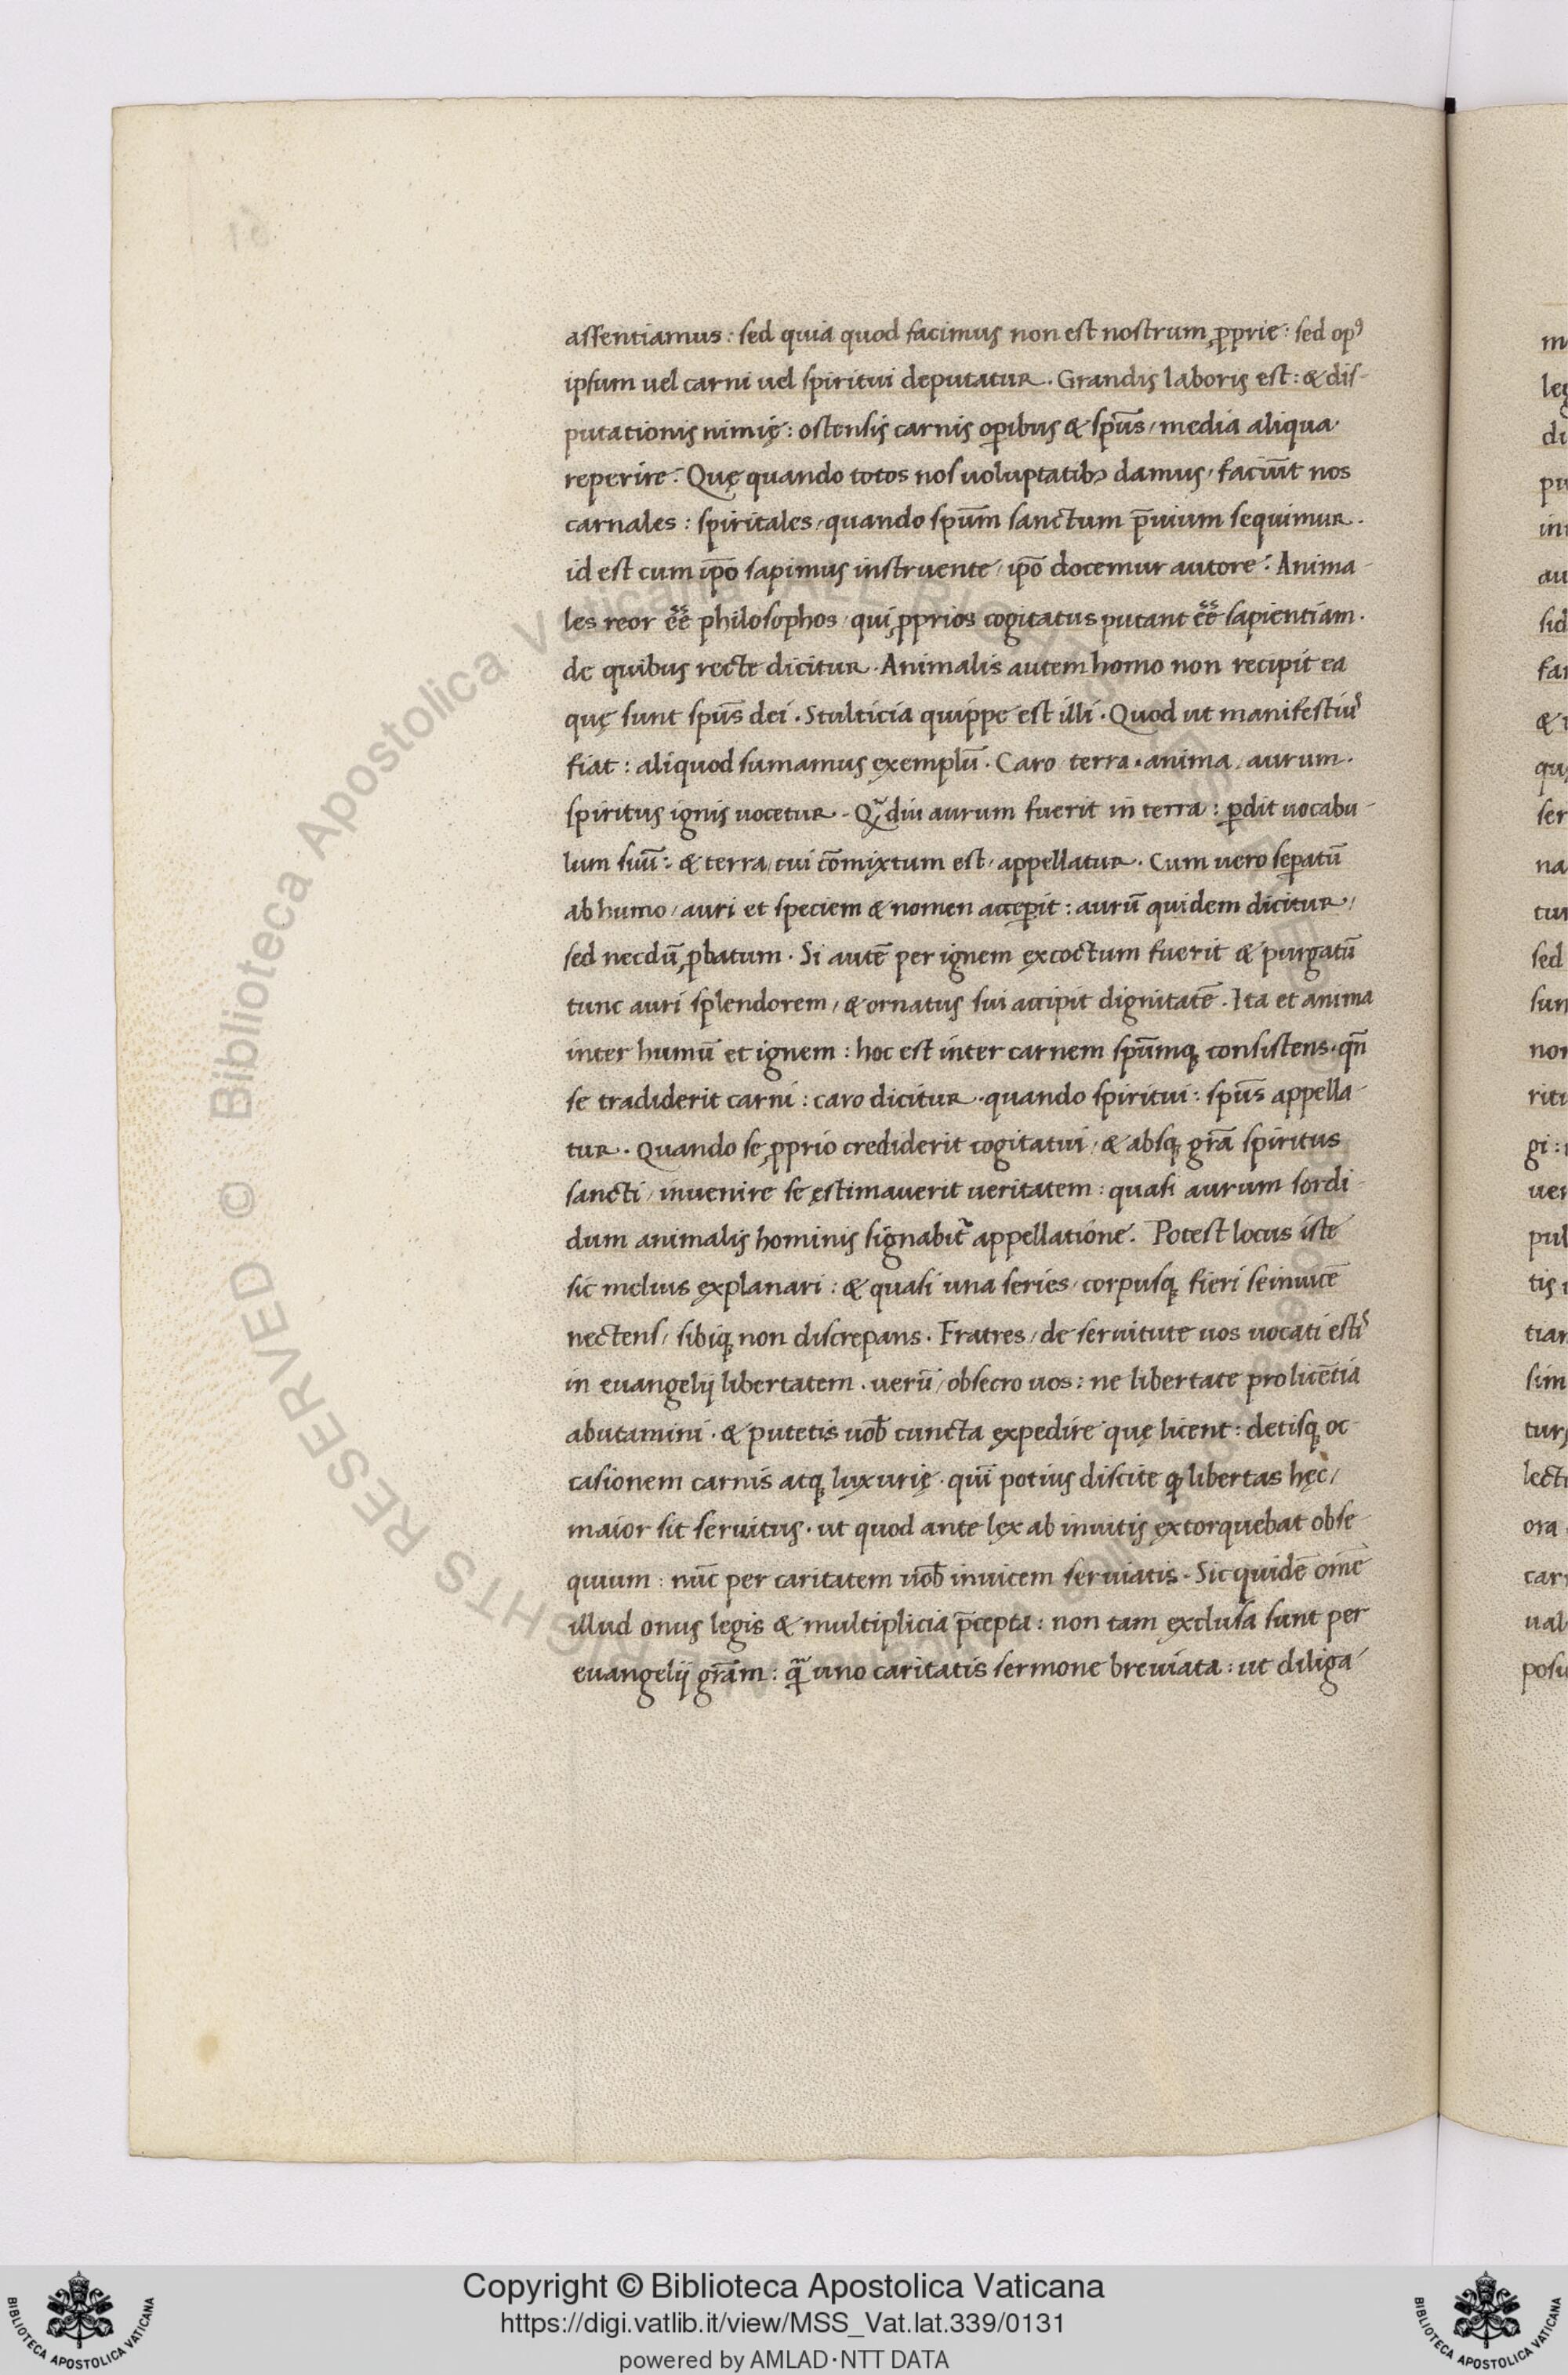 assentiamus: sed quia quod facimus non est nostrum ꝓprie: sed opꝰ
ipsum uel carni uel spiritui deputatur. Grandis laboris est: & dis-
putationis nimię: ostensis carnis oꝑibus & sp̄us, media aliqua
reperire. Quę quando totos nos uoluptatibꝫ damus, faciūt nos
carnales: spiritales, quando sp̄um sanctum p̄uium sequimur.
id est cum ip̄o sapimus instruente, ip̄o docemur autore. Anima-
les reor ēē philosophos, qui ꝓprios cogitatus putant ēē sapientiam.
de quibus recte dicitur. Animalis autem homo non recipit ea
quę sunt sp̄us dei. Stulticia quippe est illi. Quod ut manifestiuꝰ
fiat: aliquod sumamus exemplū. Caro terra. anima, aurum.
spiritus ignis uocetur. Qᷓdiu aurum fuerit in terra: ꝑdit uocabu-
lum suū: & terra, cui cōmixtum est, appellatur. Cum uero seꝑatū
ab humo, auri et speciem & nomen acceꝑit: aurū quidem dicitur,
sed necdū ꝓbatum. Si autē per ignem excoctum fuerit & purgatū
tunc auri splendorem, & ornatus sui accipit dignitatē. Ita et anima
inter humū et ignem: hoc est inter carnem sp̄umqꝫ consistens. qn̄
se tradiderit carni: caro dicitur. quando spiritui: sp̄us appella-
tur. Quando se ꝓprio crediderit cogitatui, & absqꝫ grā spiritus
sancti, inuenire se ęstimauerit ueritatem: quasi aurum sordi-
dum animalis hominis signabit᷑ appellatione. Potest locus iste
sic melius explanari: & quasi una series, corpusqꝫ fieri se inuicē
nectens, sibiqꝫ non discrepans. Fratres, de seruitute uos uocati estis
in euangelij libertatem. uerū, obsecro uos: ne libertate pro licētia
abutamini. & putetis uob̄ cuncta expedire quę licent: detisqꝫ oc-
casionem carnis atqꝫ luxurię. quī potius discite ꝙ libertas hęc,
maior sit seruitus. ut quod ante lex ab inuitis extorquebat obse-
quium: nūc per caritatem uob̄ inuicem seruiatis. Sic quidē om̄e
illud onus legis & multiplicia p̄cepta: non tam exclusa sunt per
euangelij grām: qᷓ uno caritatis sermone breuiata: ut diliga-
© Biblioteca Apostolica Vaticana
Copyright © Biblioteca Apostolica Vaticana
https://digi.vatlib.it/view/MSS_Vat.lat.339/0131
powered by AMLAD·NTT DATA
BIBLIOTECA APOSTOLICA VATICANA
BIBLIOTECA APOSTOLICA VATICANA